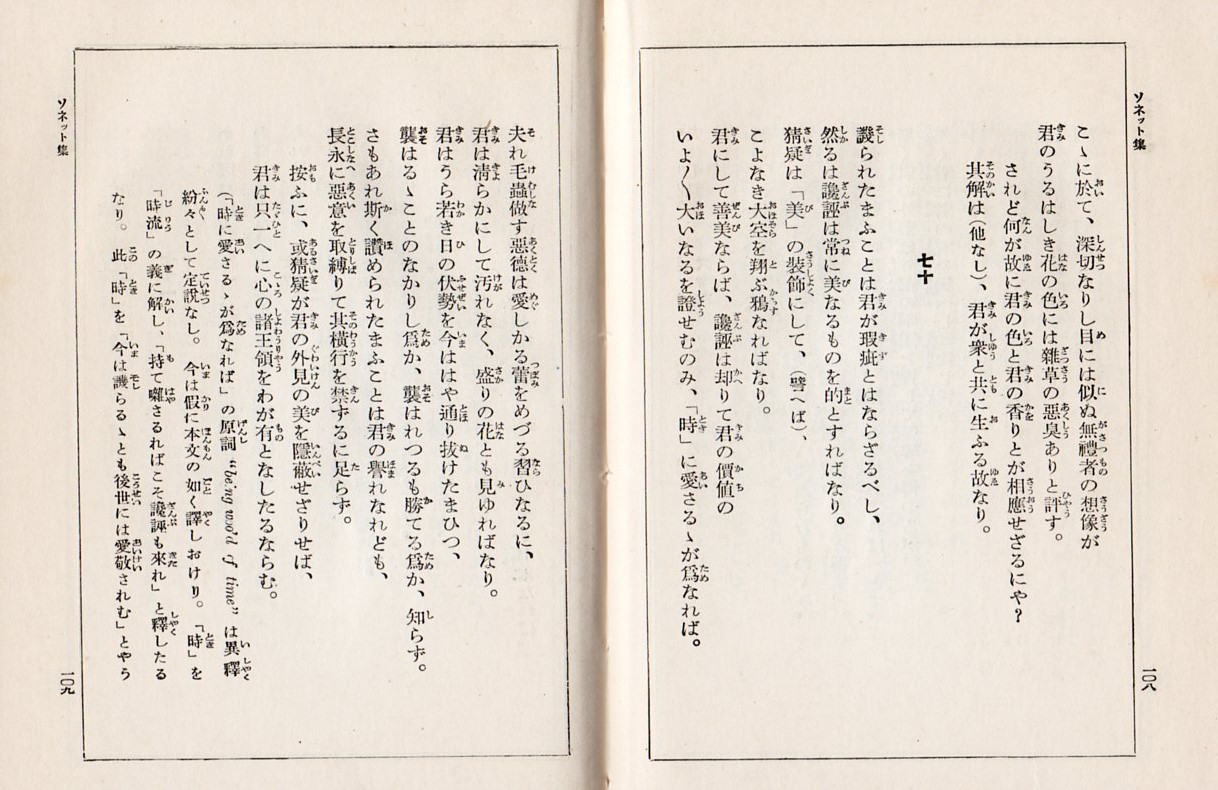 ソネット集
こゝに於て、深切なりし目には似ぬ無禮者の想像が
君のうるはしき花の色には雜草の惡臭ありと評す。
されど何が故に君の色と君の香りとが相應せざるにや？
其解は（他なし）、君が衆と共に生ふる故なり。
七十
譏られたまふことは君が瑕疵とはならざるべし、
然るは讒誣は常に美なるものを的とすればなり。
猜疑は「美」の裝飾にして、（譬へば）、
こよなき大空を翔ぶ鴉なればなり。
君にして善美ならば、讒誣は却りて君の價値の
いよ〳〵大いなるを證せむのみ、「時」に愛さるゝが爲なれば。
一〇八
ソネット集
夫れ毛蟲做す惡德は愛しかる蕾をめづる習ひなるに、
君は淸らかにして汚れなく、盛りの花とも見ゆればなり。
君はうら若き日の伏勢を今ははや通り拔けたまひつ、
襲はるゝことのなかりし爲か、襲はれつるも勝てる爲か、知らず。
さもあれ斯く讚められたまふことは君の譽れなれども、
長永に惡意を取縛りて其橫行を禁ずるに足らず。
按ふに、或猜疑が君の外見の美を隱蔽せざりせば、
君は只一へに心の諸王領をわが有となしたるならむ。
（「時に愛さるゝが爲なれば」の原詞 “being woo'd of time” は異釋
紛々として定說なし。今は假に本文の如く譯しおけり。「時」を
「時流」の義に解し、「持て囃さるればこそ讒誣も來れ」と釋したる
なり。此「時」を「今は譏らるゝとも後世には愛敬されむ」とやう
一〇九